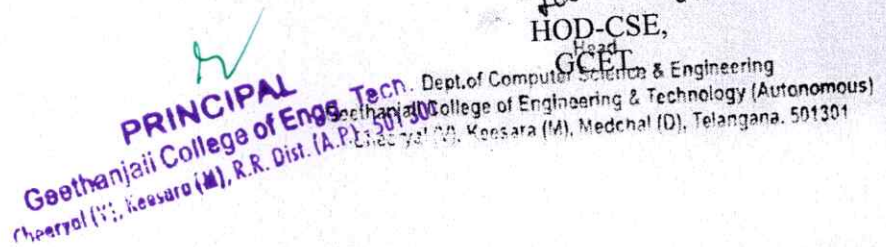 HOD-CSE,
GCET.
Head
Dept.of Computer Science & Engineering
Geethanjali College of Engineering & Technology (Autonomous)
Cheeryal (V), Keesara (M), Medchal (D), Telangana. 501301
PRINCIPAL
Geethanjali College of Engg. Tecn.
Cheeryal (V), Keesara (M), R.R. Dist. (A.P.) 501 300